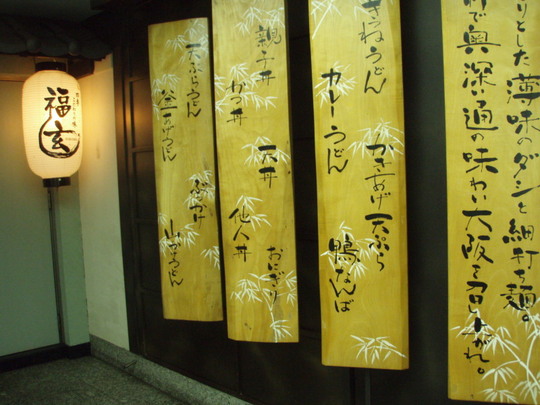 りとした薄味のダシと細打ち麺。
で奥深い通の味わい大阪を召し上がれ。
きつねうどん
かきあげ天ぷら
カレーうどん
鴨なんば
親子丼
天丼
おにぎり
かつ丼
他人丼
天ぷらうどん
ぶっかけ
山かけうどん
あげうどん
福玄